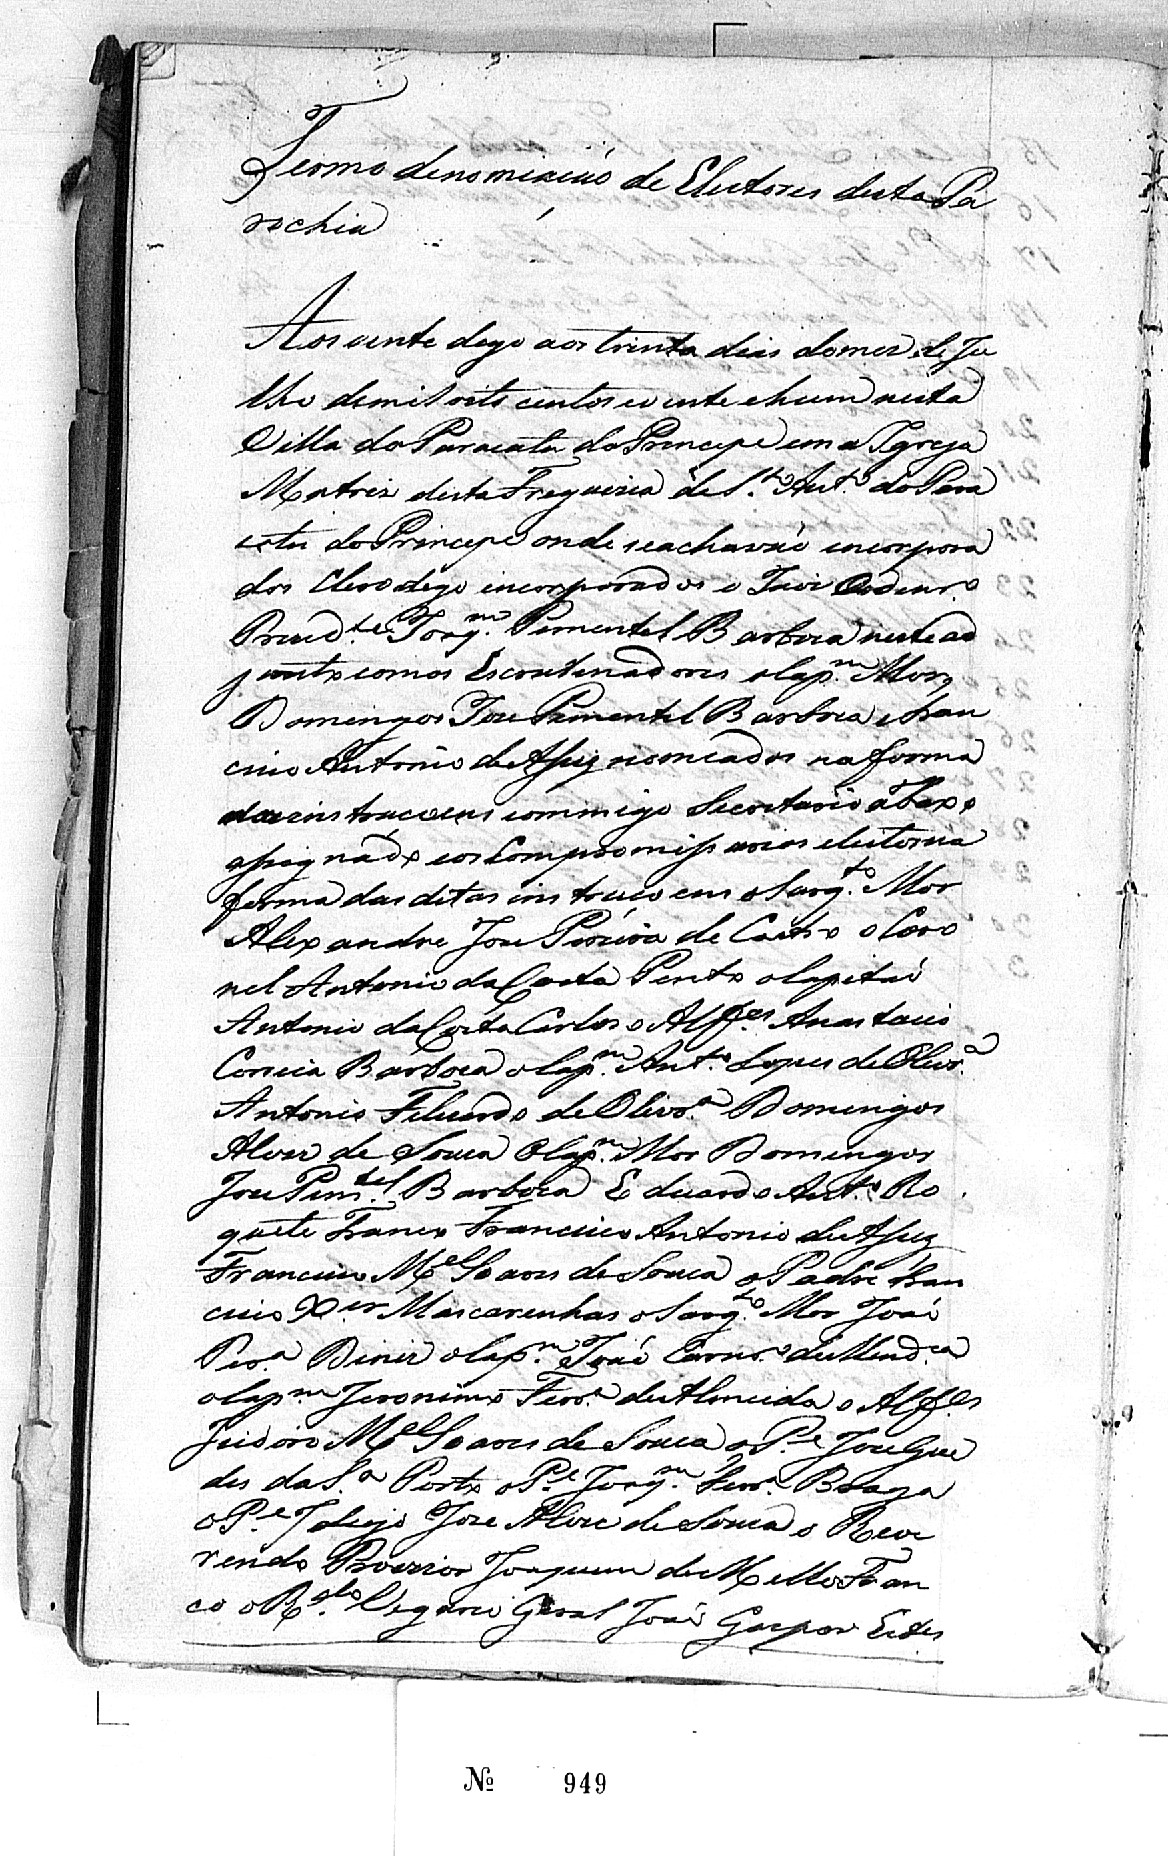 Termo denomiacaó de Electores desta Pa
rochia
Aos vinte digo aos trinta dias do mes de Ju
lho de mil oito centos e vinte e hum nesta
Villa do Paracatu do Principe em a Igreja
Matriz desta Freguezia de S.to Ant.o do Para
catu do Principe onde se achavaó encorpora
dos Clero digo incorporados o Juiz Ordinr.o
Prezid.te Joaq.m Pimentel Barboza
junto com os Escortinadores o Cap.m Mor
Domingos Joze Pimentel Barboza e Fran
cisco Antonio de Assiz nomeados na forma
das instrucoens commigo Secretario abaxo
assignado e os Compromissarios eleitos na
forma das ditas instrucoens o Sarg.to Mor
Alexandre Joze Pereira de Castro o Coro
nel Antonio da Costa Pinto o Capitaó
Antonio da Costa Carlos o Alff.es Anastacio
Correia Barboza o Cap.m Ant.o Lopes de Olivr.a
Antonio de Olivr.a Domingos
Alves de Souza o Cap.m Mor Domingos
Joze Pim.tel Barboza Eduardo Ant.o Ro
quete Franco Francisco Antonio de Assiz
Francisco M.el Soares de Souza o Padre Fran
cisco X.er Mascarenhas o Sarg.to Mor Joaó
Per.a Diniz o Cap.m Joaó Carnr.o de Mend.ca
o Cap.m Jeronimo Ferr.a de Almeida o Alf.es
Izidoro M.el Soares de Souza o P.e Joze Gue
des da S.a Porto o P.e Joaq.m Ferr.a Braga
o P.e Joze Alves de Souza o Reve
rendo Provizor Joaquim de Mello Fran
co o R.do Vigario Geral Joaó Gaspar Estes
№ 949